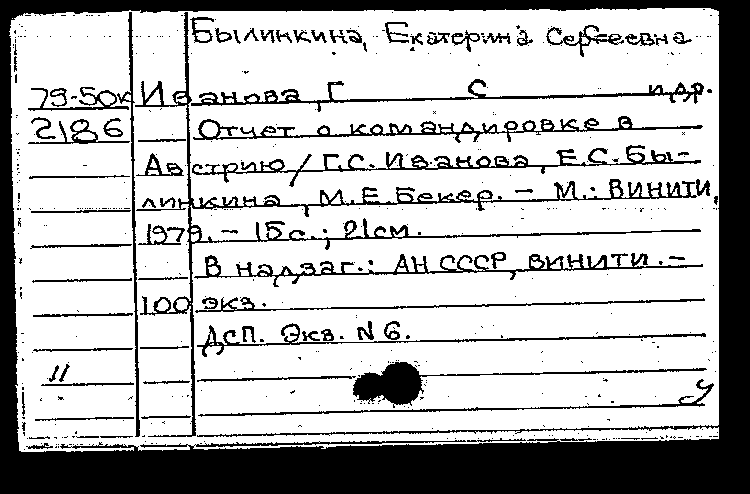 Былинкина, Екатерина Сергеевна
79-50к Иванова, Г С и др.
2186 Отчет о командировке в
Австрию / Г.С. Иванова, Е.С. Бы-
линкина, М.Е. Бекер. - М.: ВИНИТИ,
1979. - 15 с.; 21 см.
В надзаг.: АН СССР, ВИНИТИ. -
100 экз.
Дсп. Экз. N 6.
11
У